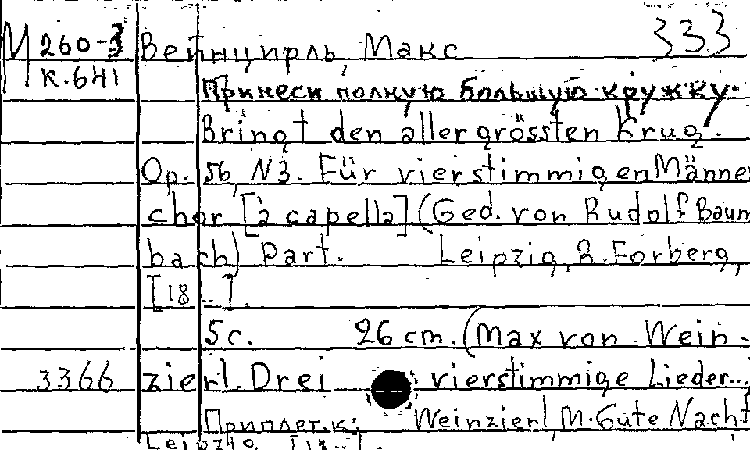 М 260-3 Вейнцирль, Макс 333
К.641
Принеси полную большую кружку.
Bringt den allergrössten Krug.
Op. 56, N3. Für vierstimmigen Männer
chor [à capella] (Ged. von Rudolf Baum
bach) Part. Leipzig, R. Forberg,
[18..].
5 с. 26 cm. (Max von Wein-
3366 zierl. Drei vierstimmige Lieder..,
Приплет.к: Weinzierl, M. Gute Nacht
Leipzig, [18..].